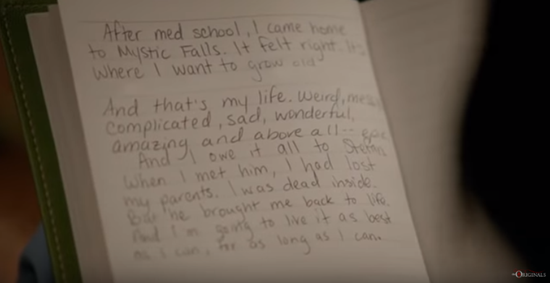 After med school, I came home
to Mystic Falls. It felt right. It's
where I want to grow old
And that's my life. Weird, messy
complicated, sad, wonderful,
amazing and above all-- epic
And I owe it all to Stefan
When I met him, I had lost
my parents. I was dead inside.
But he brought me back to life.
And I'm going to live it as best
as I can, for as long as I can.
THE ORIGINALS